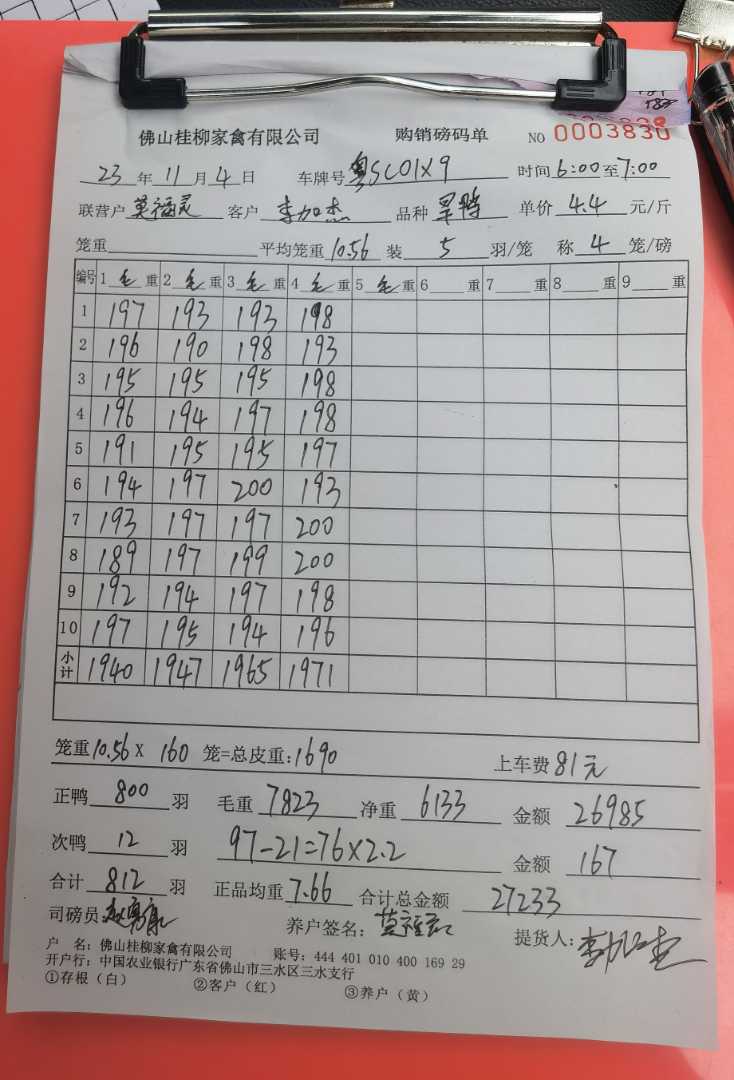 佛山桂柳家禽有限公司 购销磅码单 NO 0003830
23 年 11 月 4 日 车牌号 粤SC01X9 时间 6:00 至 7:00
联营户 莫福灵 客户 李加杰 品种 旱鸭 单价 4.4 元/斤
笼重 平均笼重 10.56 装 5 羽/笼 称 4 笼/磅
编号 1 毛 重 2 毛 重 3 毛 重 4 毛 重 5 毛 重 6 重 7 重 8 重 9 重
1 197 193 193 198
2 196 190 198 193
3 195 195 195 198
4 196 194 197 198
5 191 195 195 197
6 194 197 200 193
7 193 197 197 200
8 189 197 199 200
9 192 194 197 198
10 197 195 194 196
小计 1940 1947 1965 1971
笼重 10.56 X 160 笼=总皮重: 1690 上车费 81元
正鸭 800 羽 毛重 7823 净重 6133 金额 26985
次鸭 12 羽 97-21=76×2.2 金额 167
合计 812 羽 正品均重 7.66 合计总金额 27233
司磅员: 养户签名: 提货人: 李加杰
户 名: 佛山桂柳家禽有限公司 账号: 444 401 010 400 169 29
开户行: 中国农业银行广东省佛山市三水区三水支行
①存根（白） ②客户（红） ③养户（黄）